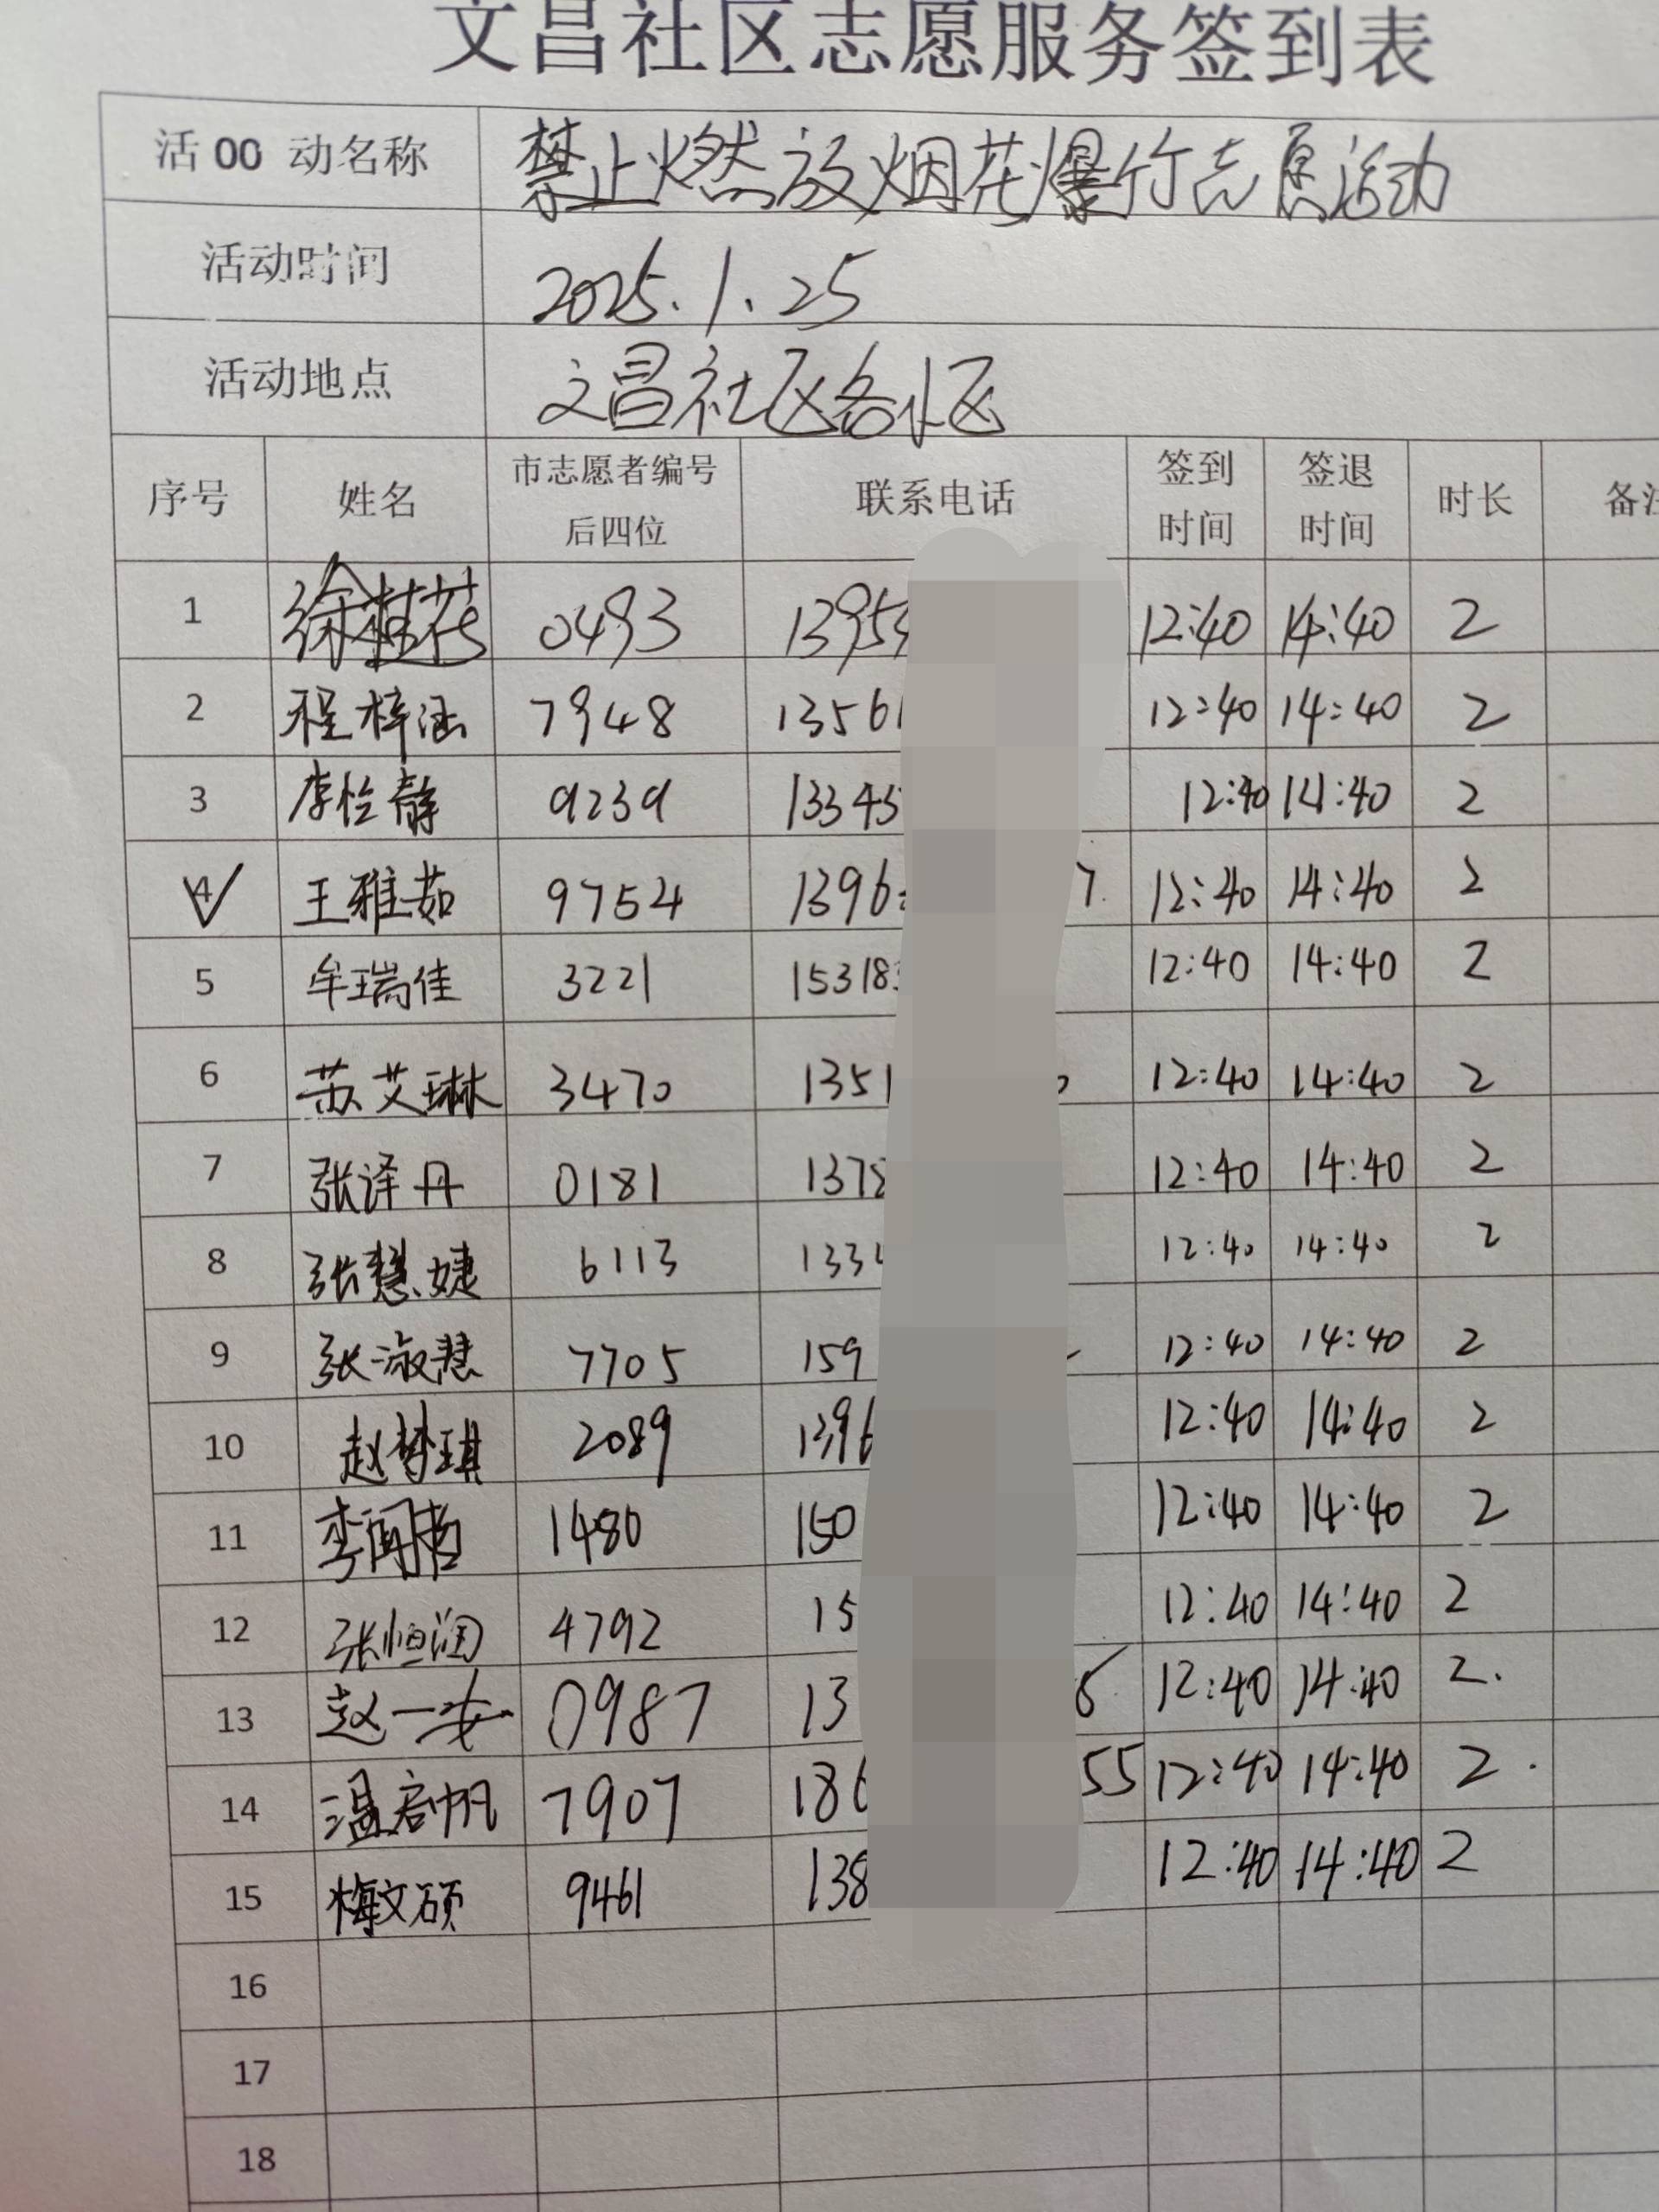 文昌社区志愿服务签到表
活 00 动名称 禁止燃放烟花爆竹志愿活动
活动时间 2025.1.25
活动地点 文昌社区各小区
序号 姓名 市志愿者编号后四位 联系电话 签到时间 签退时间 时长 备注
1 徐桂花 0493 1395 12:40 14:40 2
2 程梓涵 7948 1356 12:40 14:40 2
3 李怡静 9239 13345 12:40 14:40 2
4 王雅茹 9754 1396 7 12:40 14:40 2
5 牟瑞佳 3221 15318 12:40 14:40 2
6 苏艾琳 3470 1351 12:40 14:40 2
7 张泽丹 0181 1378 12:40 14:40 2
8 张慧婕 6113 133 12:40 14:40 2
9 张淑慧 7705 159 12:40 14:40 2
10 赵梦琪 2089 1396 12:40 14:40 2
11 李闻哲 1480 150 12:40 14:40 2
12 张恒润 4792 15 12:40 14:40 2
13 赵一安 0987 13 12:40 14:40 2.
14 温君帆 7907 186 55 12:40 14:40 2.
15 梅文硕 9461 138 12:40 14:40 2
16
17
18